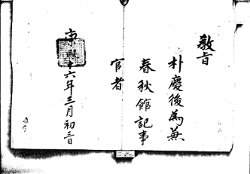 敎旨
朴慶後為兼
春秋館記事
官者
康熙十六年三月初